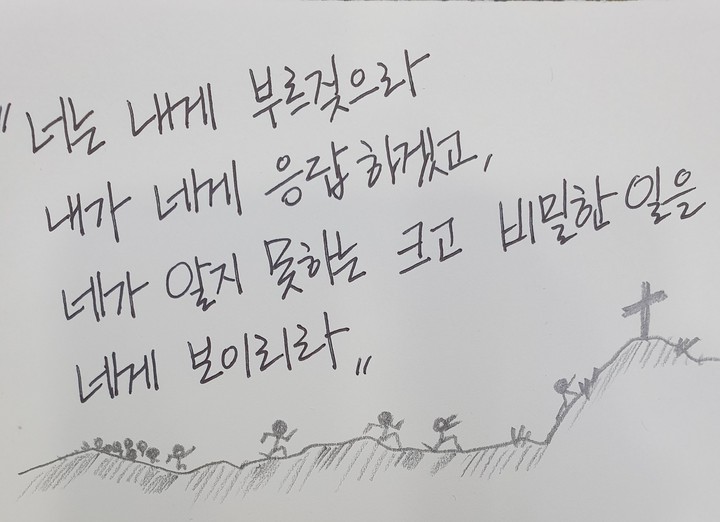 "너는 내게 부르짖으라
내가 네게 응답하겠고,
네가 알지 못하는 크고 비밀한 일을
네게 보이리라"